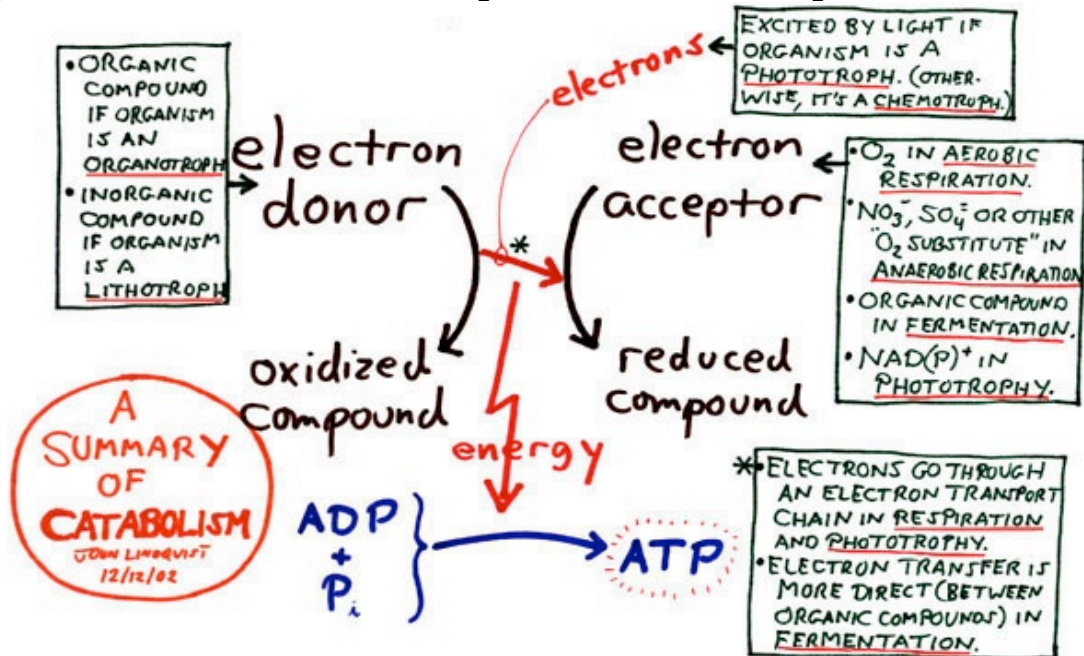 • ORGANIC
COMPOUND
IF ORGANISM
IS AN
ORGANOTROPH
• INORGANIC
COMPOUND
IF ORGANISM
IS A
LITHOTROPH
electron
donor
electrons
EXCITED BY LIGHT IF
ORGANISM IS A
PHOTOTROPH. (OTHER-
WISE, IT'S A CHEMOTROPH.)
electron
acceptor
• O₂ IN AEROBIC
RESPIRATION.
• NO₃⁻, SO₄⁼ OR OTHER
"O₂ SUBSTITUTE" IN
ANAEROBIC RESPIRATION
• ORGANIC COMPOUND
IN FERMENTATION.
• NAD(P)⁺ IN
PHOTOTROPHY.
*
oxidized
compound
reduced
compound
energy
A
SUMMARY
OF
CATABOLISM
JOHN LINDQUIST
12/12/02
ADP
+
Pi
ATP
* • ELECTRONS GO THROUGH
AN ELECTRON TRANSPORT
CHAIN IN RESPIRATION
AND PHOTOTROPHY.
• ELECTRON TRANSFER IS
MORE DIRECT (BETWEEN
ORGANIC COMPOUNDS) IN
FERMENTATION.